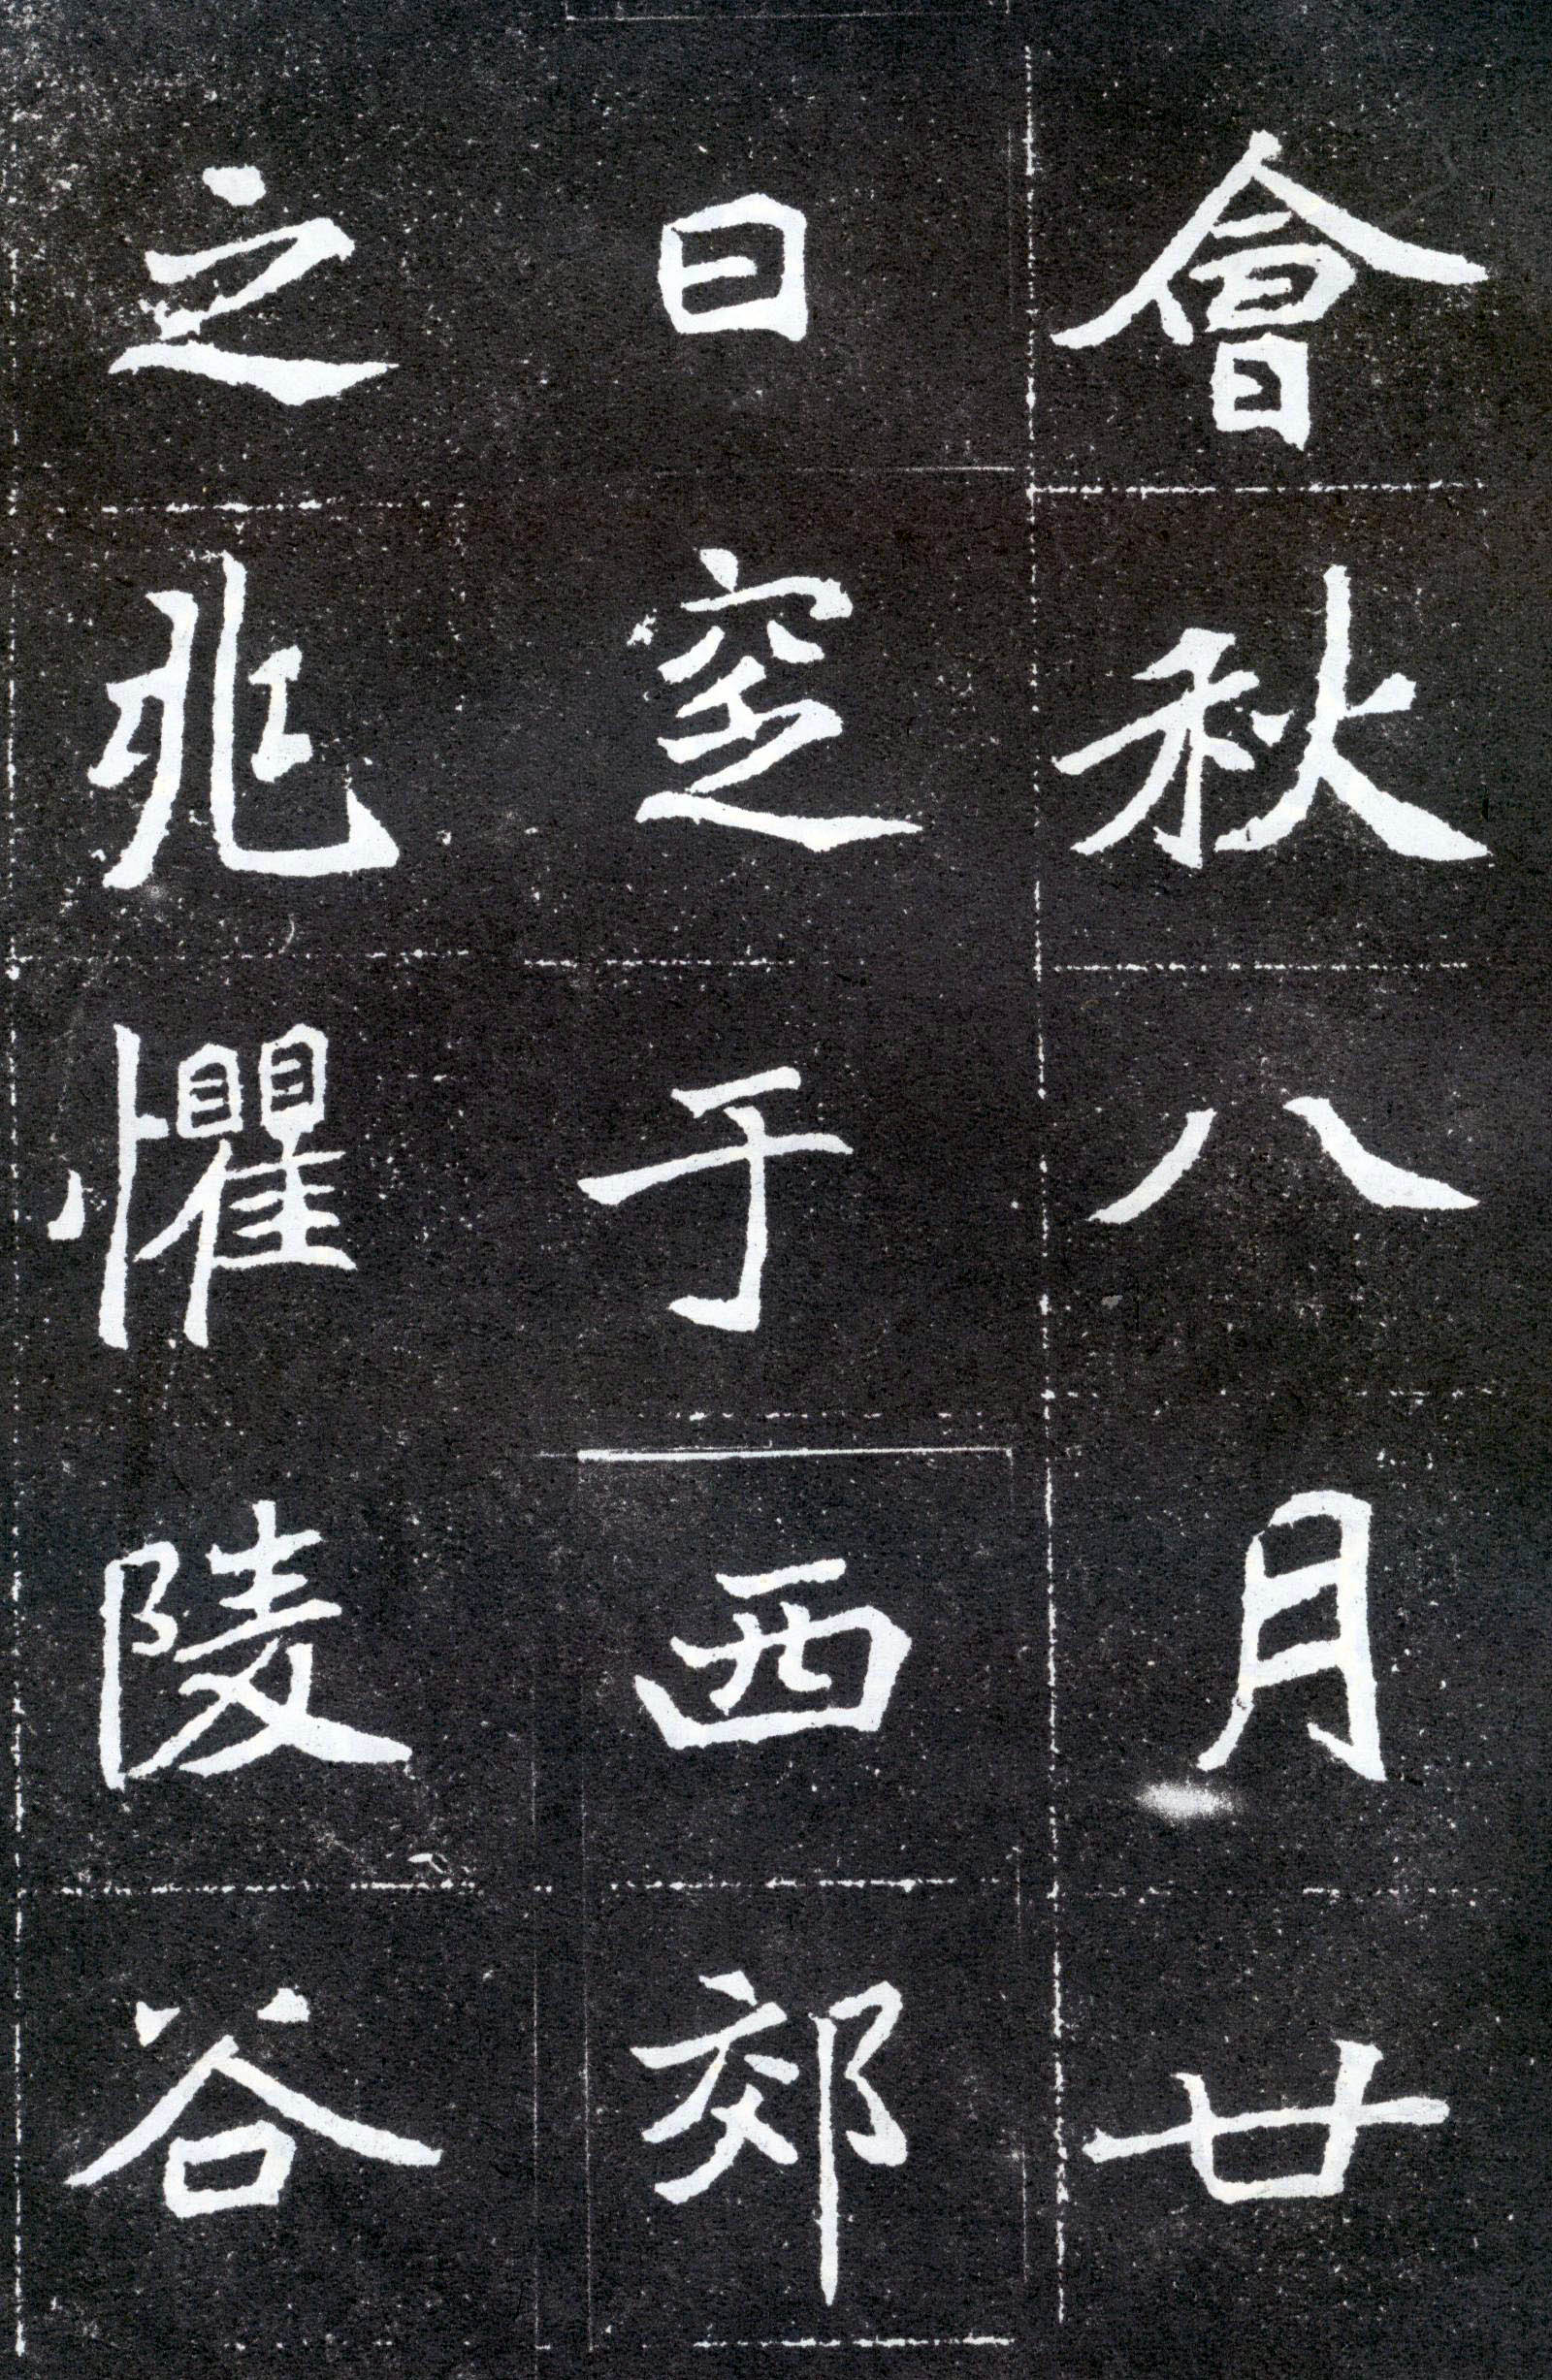 會秋八月廿
日窆于西郊
之兆懼陵谷